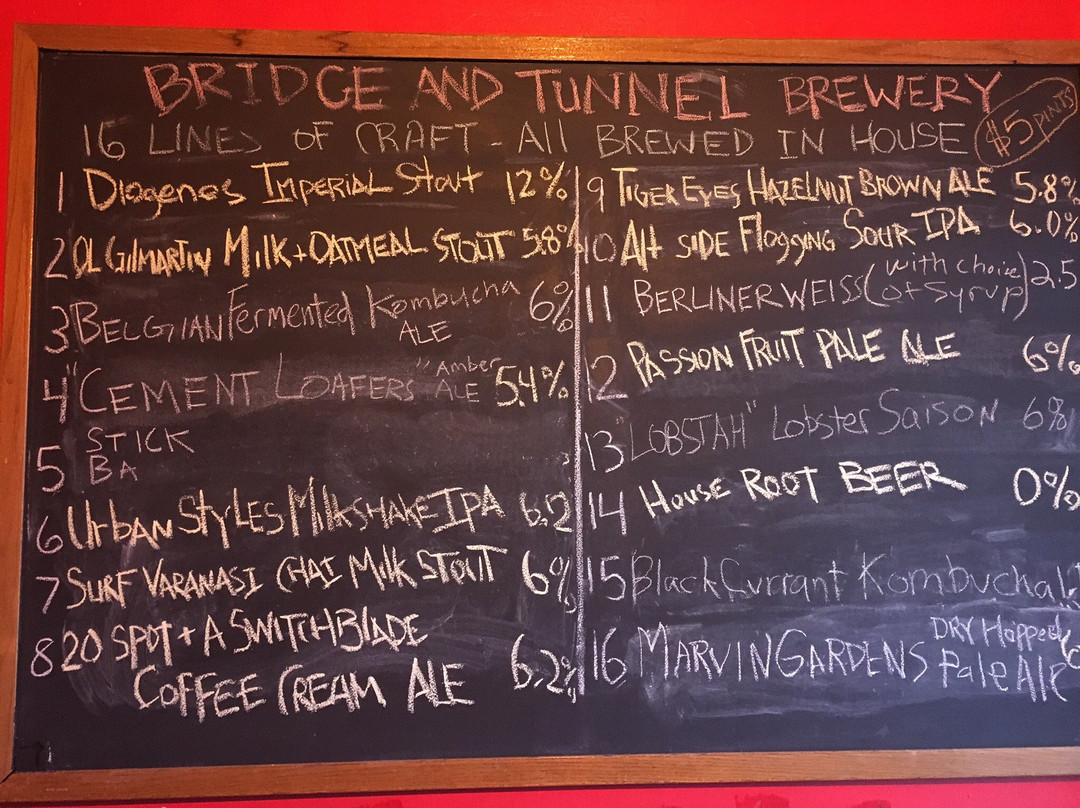 BRIDGE AND TUNNEL BREWERY
$5 PINTS
16 LINES OF CRAFT - All BREWED IN HOUSE
1 Diogenes Imperial Stout 12%
2 OL GILMARTIN MILK + OATMEAL STOUT 5.8%
3 BELGIAN Fermented Kombucha 6%
ALE
4 "CEMENT LOAFERS" Amber ALE 5.4%
5 STICK
BA
6 Urban Styles MilkshakE IPA 6.2
7 SURF VARANASI CHAI Milk STOUT 6%
8 20 SPOT + A SWITCHBLADE
COFFEE CREAM ALE 6.2%
9 TIGER EYES HAZELNUT BROWN ALE 5.8%
10 Alt SIDE Flogging SOUR IPA 6.0%
11 BERLINER WEISS (with choize of Syrup) 2.5
12 PASSION FRUIT PALE ALE 6%
13 "LOBSTAH" Lobster Saison 6%
14 House ROOT BEER 0%
15 Black Currant Kombucha
16 MARVIN GARDENS DRY Hopped Pale Ale 6